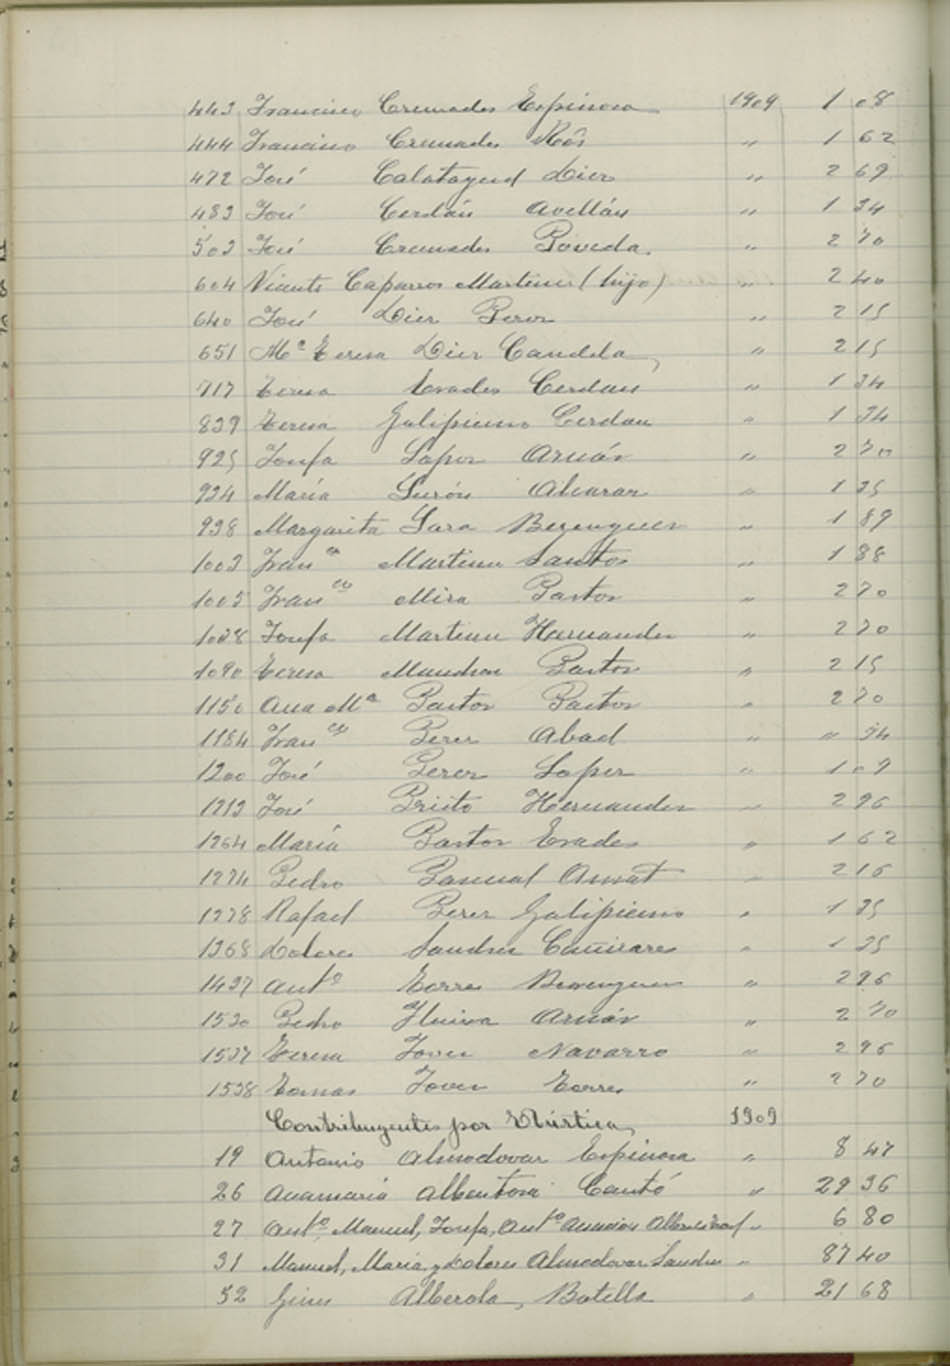 443 Francisco Cremades Espinosa 1909 1 08
444 Francisco Cremades Ros " 1 62
472 José Calatayud Dier " 2 69
483 José Cerdán Avellán " 1 34
503 José Cremades Poveda " 2 70
604 Vicente Caparros Martinez (hijo) " 2 40
640 José Dier Perez " 2 15
651 Mª Teresa Dier Candela " 2 15
717 Teresa Erades Cerdan " 1 34
839 Teresa Galipienso Cerdan " 1 34
925 Josefa Loper " 2 70
934 María Alcaraz " 1 35
938 Margarita Lara Berenguer " 1 89
1003 Franco Martinez Santos " 1 88
1005 Franco Mira Pastor " 2 70
1038 Josefa Martinez Hernandez " 2 70
1090 Teresa Pastor " 2 15
1150 Ana Mª Pastor Pastor " 2 70
1184 Franco Perez Abad " " 54
1200 José Perez Loper " 1 09
1213 José Prieto Hernandez " 2 96
1264 María Pastor Erades " 1 62
1274 Pedro Pascual Amat " 2 16
1278 Rafael Perez Galipienso " 1 35
1368 Dolores Sanchez Cañizares " 1 35
1437 Antº Torres Berenguer " 2 96
1530 Pedro " 2 70
1537 Teresa Jover Navarro " 2 96
1538 Tomas Jover Torres " 2 70
Contribuyentes por Rústica 1909
19 Antonio Almodovar Espinosa " 8 47
26 Anamaria Albentosa Cantó " 29 36
27 Antº, Manuel, Josefa, Antº " 6 80
31 Manuel, Maria y Dolores Almodovar Sanchez " 87 40
52 Gines Alberola Botella " 21 68